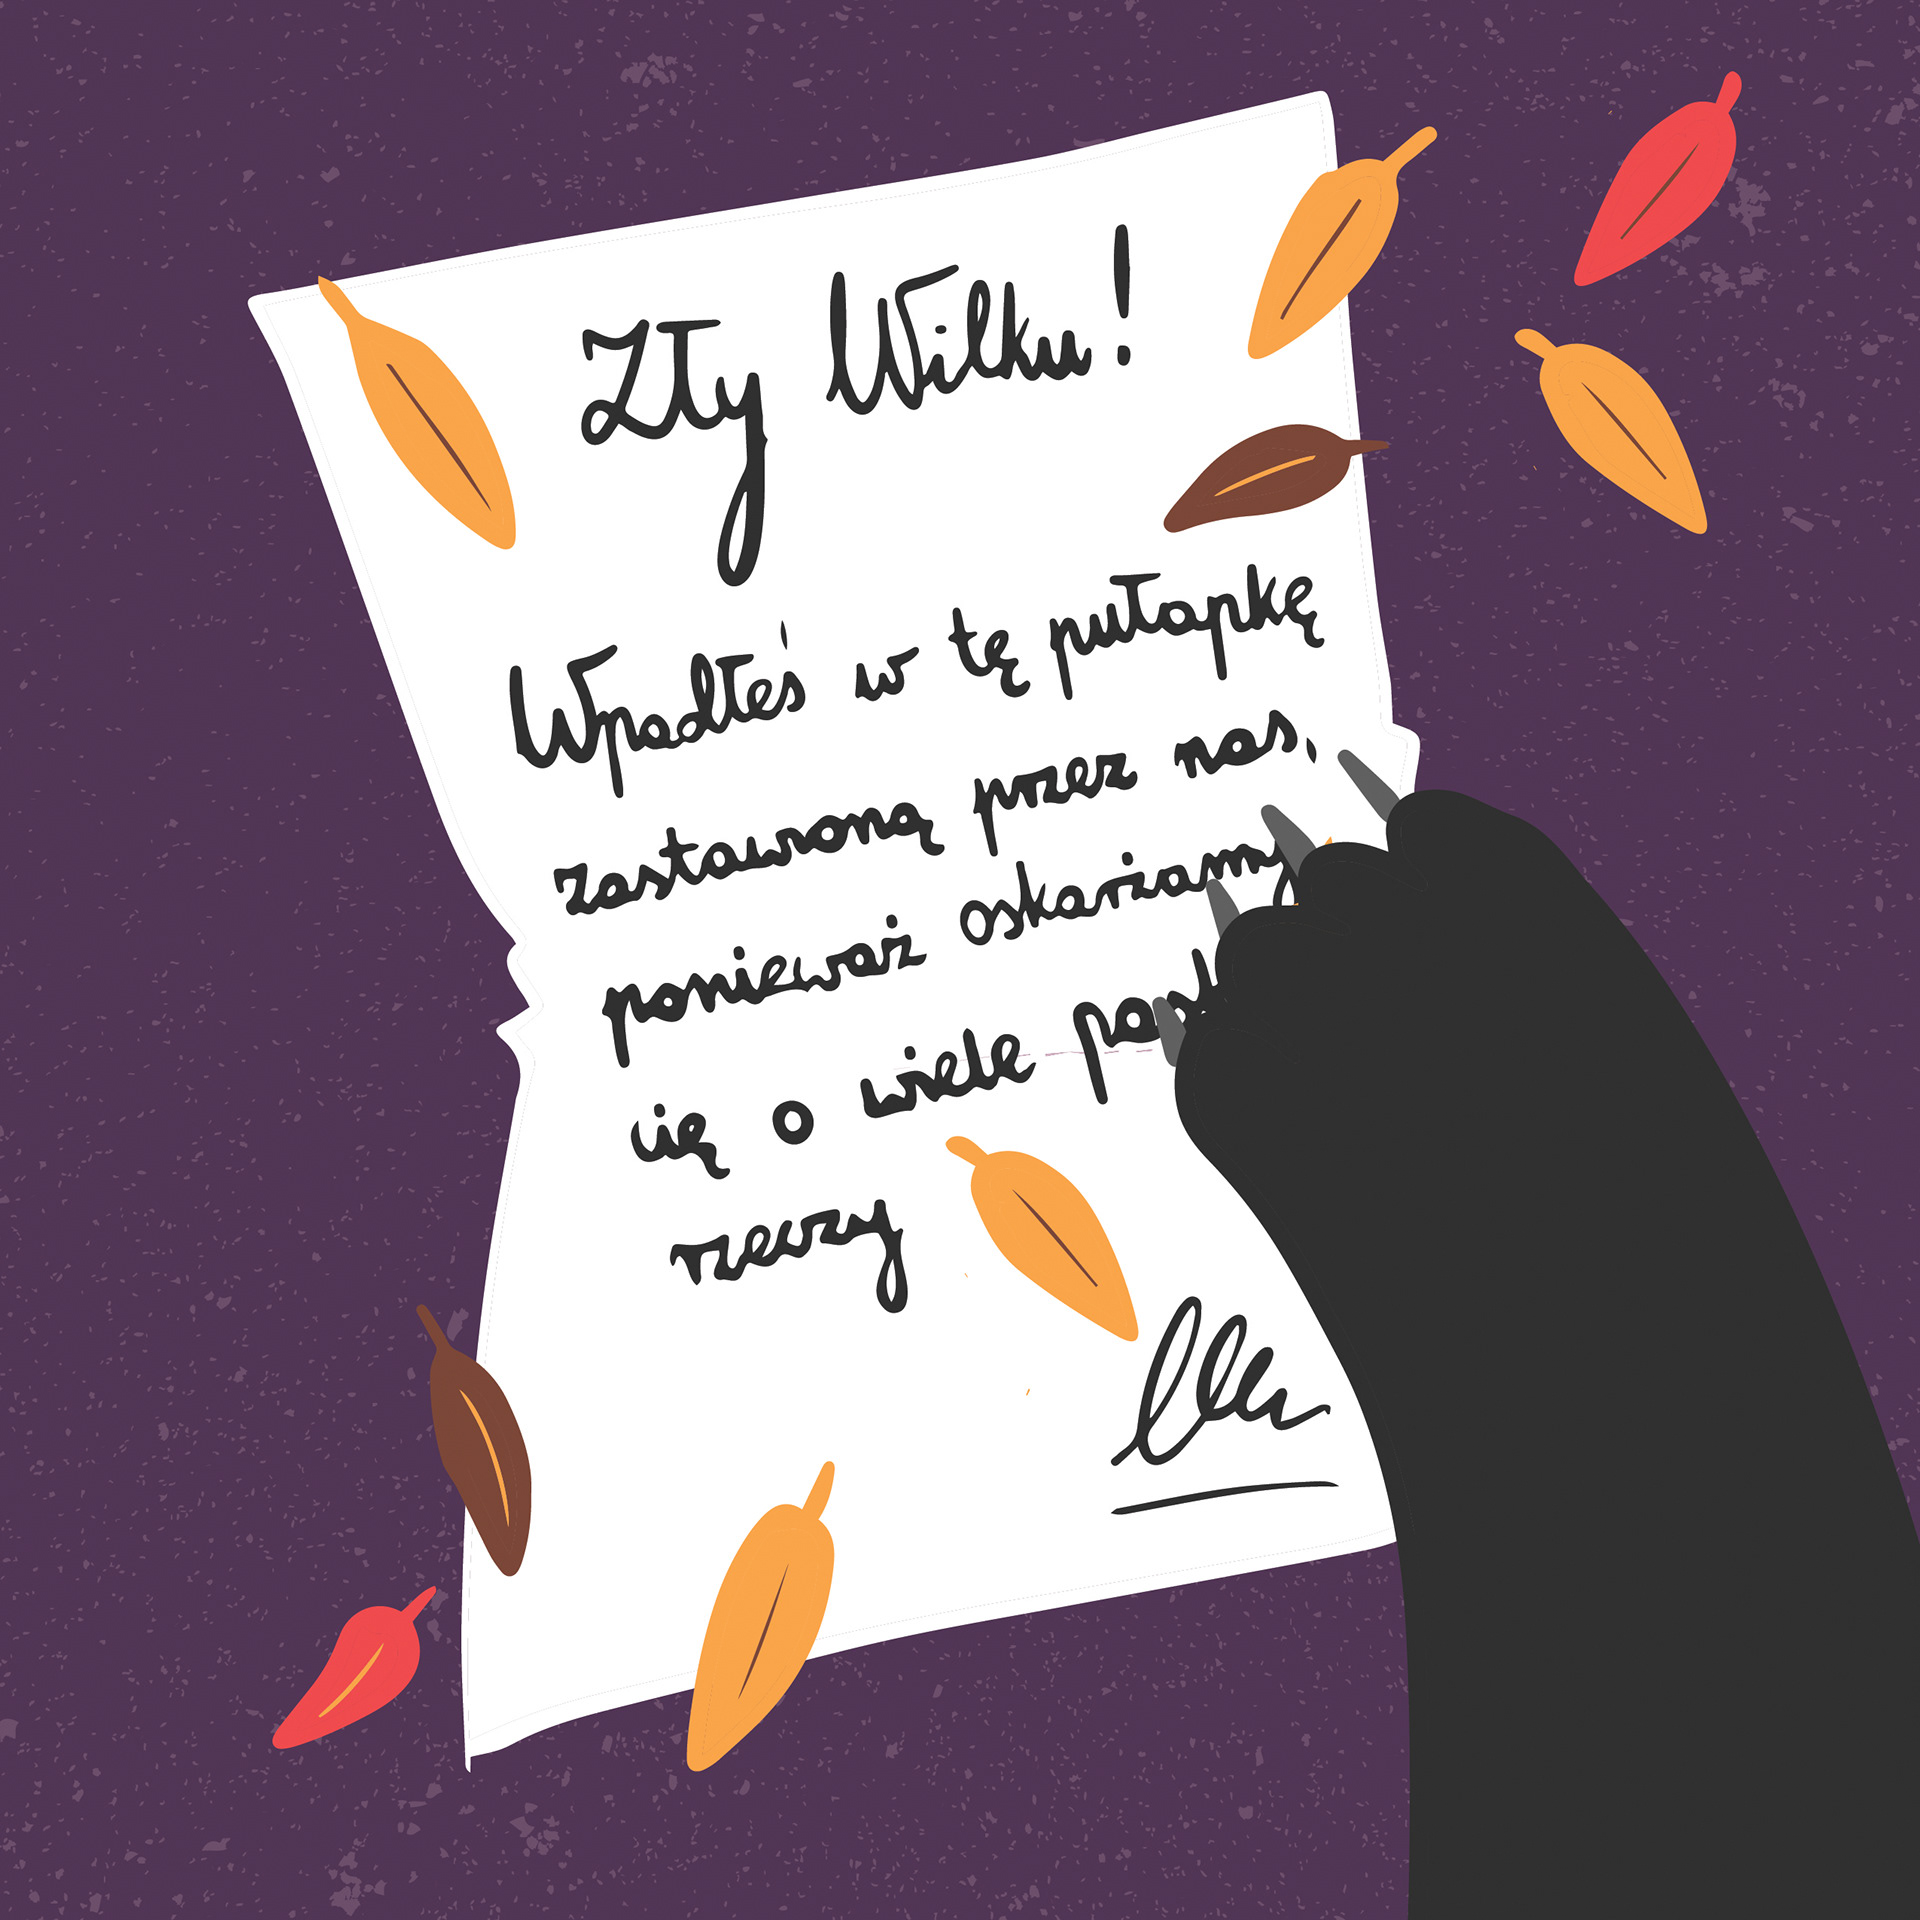 Zły Wilku!
Wpadłeś w tę pułapkę
zastawoną przez nas,
ponieważ oskarżamy
cię o wiele
rzeczy